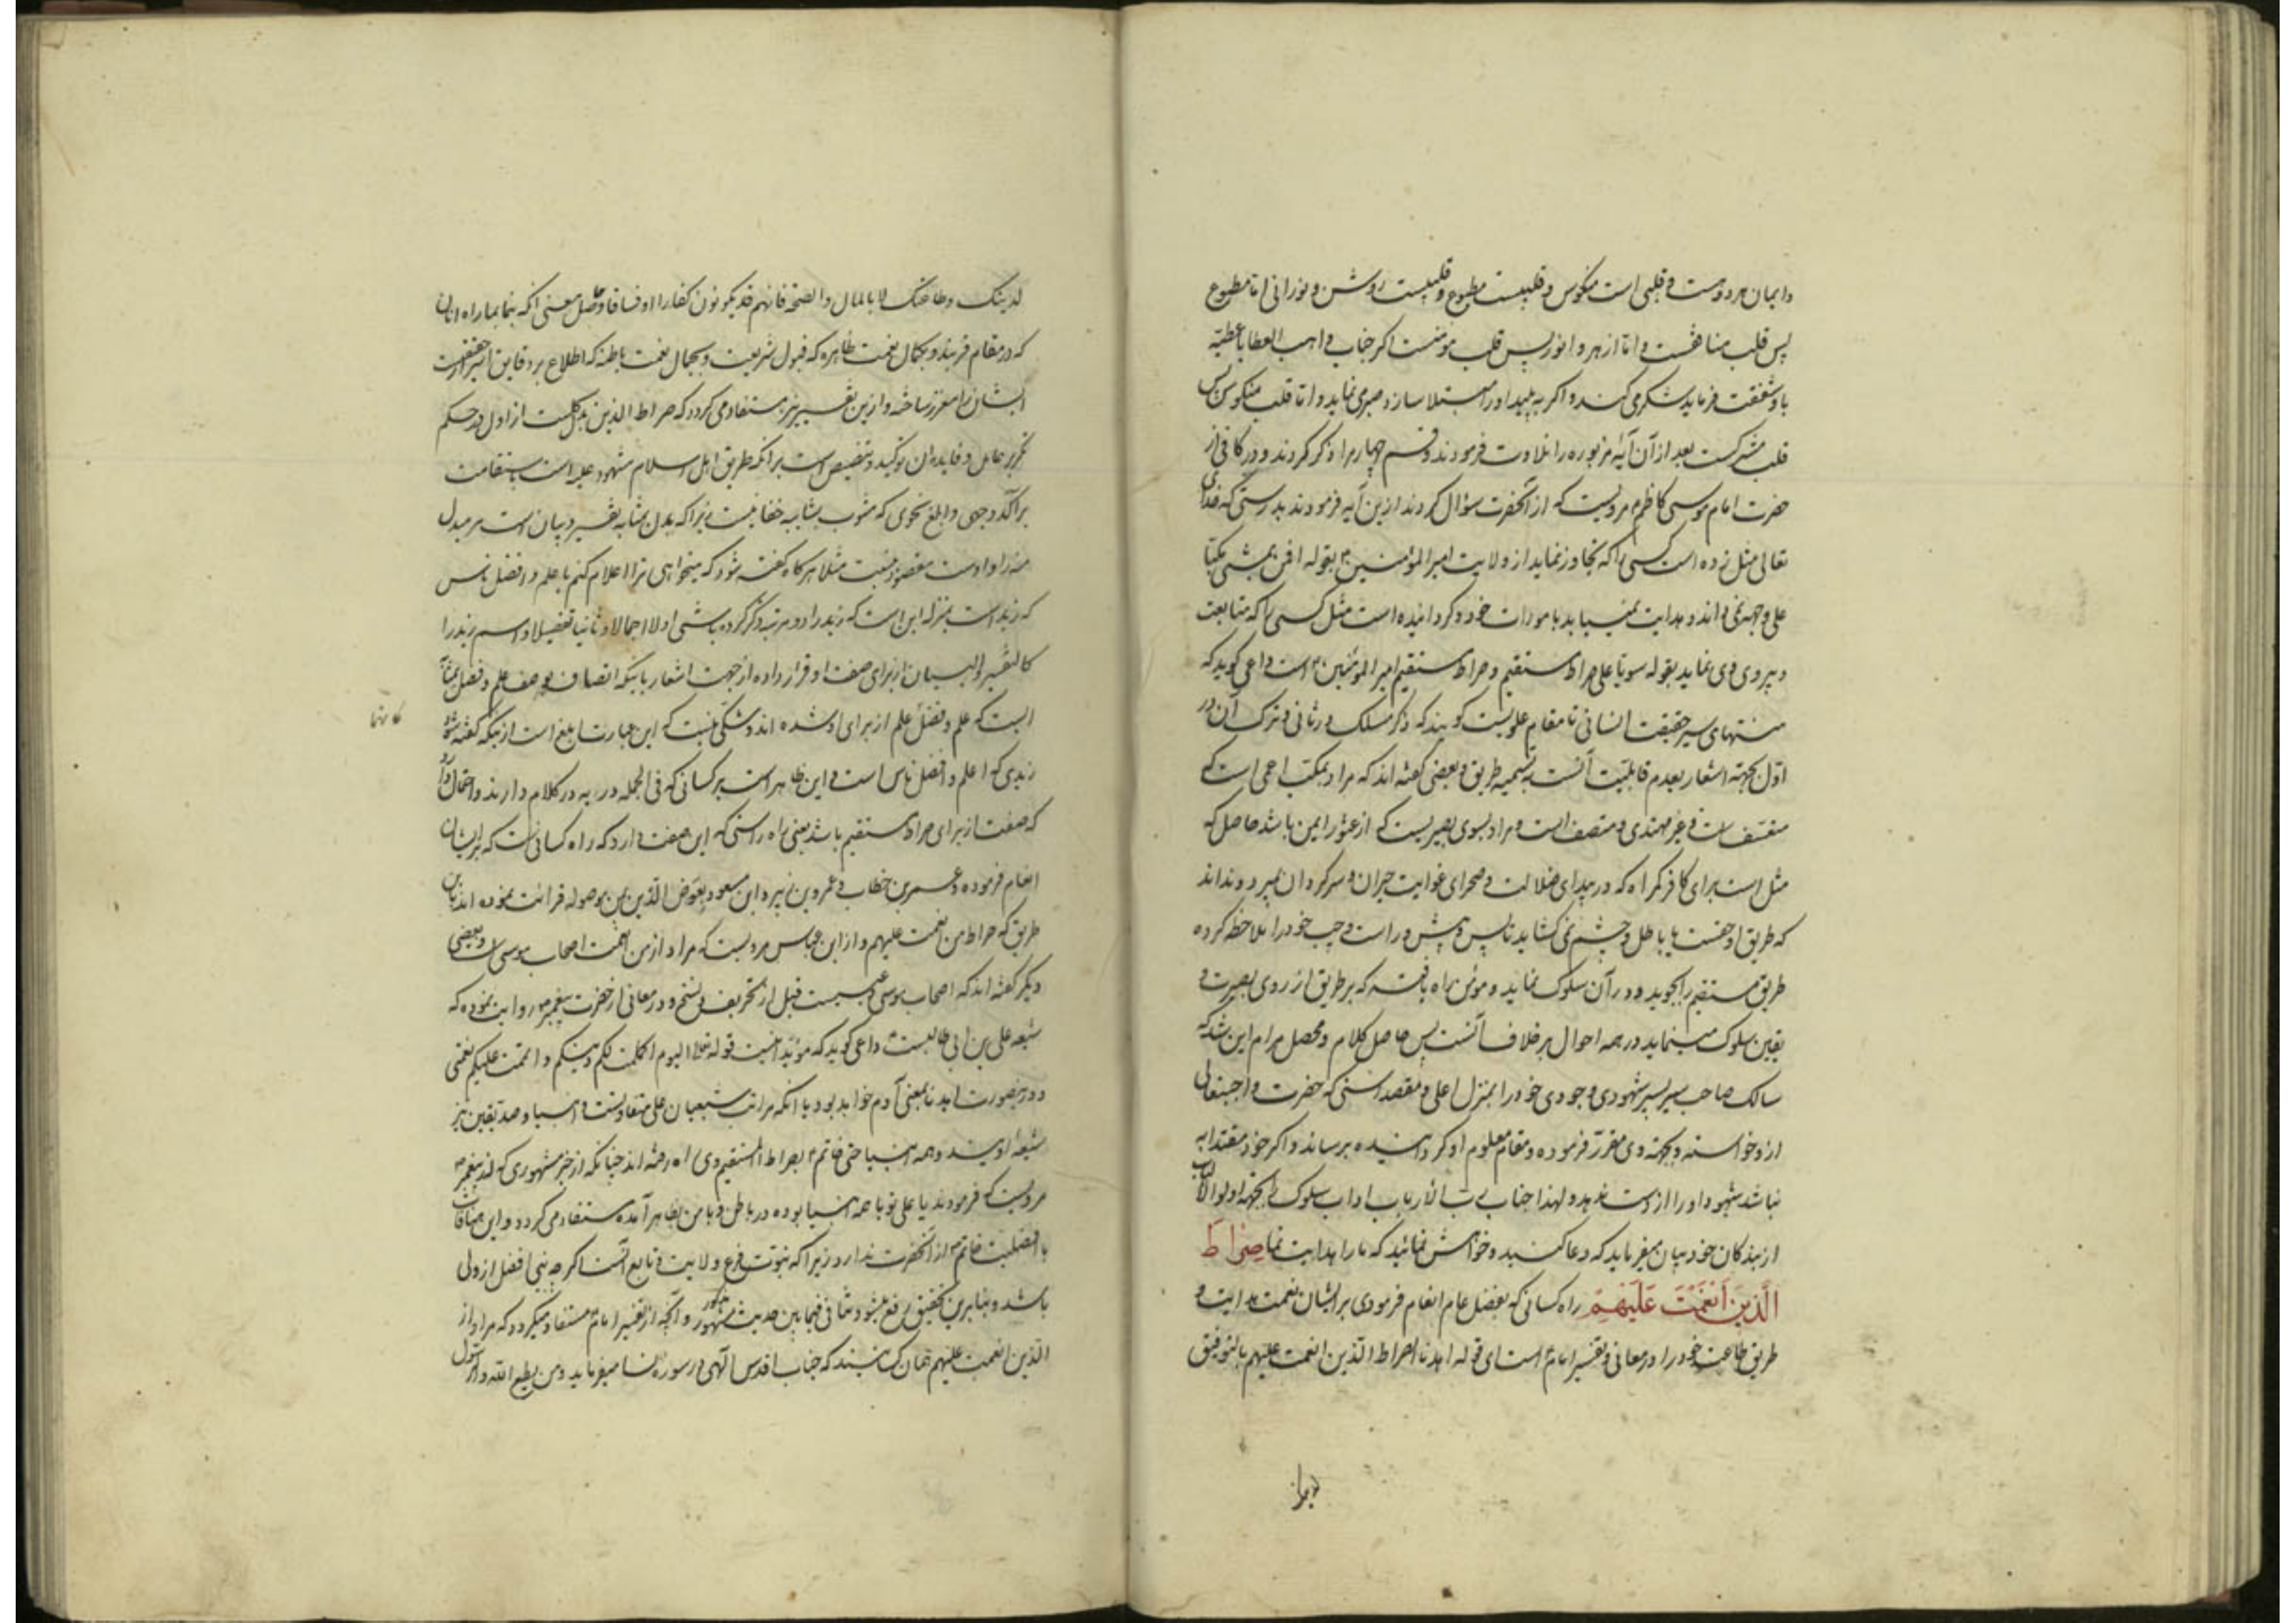 وایمان هر دو هست و قلبی است منکوس و قلبیست مطبوع و قلبیست روشن و نورانی اما مطبوع
پس قلب منافقست و اما ازهر و انور پس قلب مومنست اکر جناب واهب العطایا عطیّه
باو شفقت فرماید شکر می کند و اکر به بلیه او را مبتلا سازد صبر می نماید و اما قلب منکوس پس
قلب مشرکست بعد از آن آیهٔ مزبوره را تلاوت فرمودند و قسم چهارم را ذکر کردند و در کافی از
حضرت امام موسی کاظم م مرویست که از آنحضرت سؤال کردند ازین آیه فرمودند بدرستی که خدای
تعالی مثل زده است کسی را که تجاوز نماید از ولایت امیر المؤمنین م بقوله افمن یمشی مکبا
علی وجهه نمی داند و هدایت نمییابد بامورات خود و کردانیده است مثل کسی را که متابعت
و پیروی وی نماید بقوله سویّا علی صراط مستقیم و صراط مستقیم امیر المؤمنین م است داعی کوید که
منتهای سیر حقیقت انسانی تا مقام علویست کویند که ذکر مسلک در ثانی و ترک آن در
اوّل بجهة اشعار بعدم قابلیّت آنست به تسمیه طریق و بعضی کفته اند که مراد بمکب اعمی است که
متعسف است و غیر مهتدی و متصف است و مراد بسوی بصیریست که از عثور ایمن باشد حاصل که
مثل است برای کافر کمراه که در بیدای ضلالت و صحرای غوایت حیران و سرکردان میرود و نداند
که طریق او حقست یا باطل و چشم نمی کشاید تا پس و پیش و راست و چپ خود را ملاحظه کرده
طریق مستقیم را بجوید و در آن سلوک نماید و مومن راه یافته که بر طریق از روی بصیرت و
یقین سلوک مینماید در همه احوال بر خلاف آنست پس حاصل کلام و محصل مرام این شد که
سالک صاحب سیر بسیر شهودی و وجودی خود را بمنزل اعلی و مقصد اسنی که حضرت واجبتعالی
ازو خواسته و بجهة وی مقرّر فرموده و مقام معلوم او کردانیده برساند و اکر خود مقتدا به
نباشد شهود او را از دست ندهد و لهذا جناب رب الارباب اداب سلوک را بجهة اولوا الالباب
از بندکان خود بیان میفرماید که دعا کنید و خواهش نمائید که ما را هدایت نما صِراطَ
الَّذینَ اَنعَمتَ عَلَیهِم راه کسانی که بفضل عام انعام فرمودی بر ایشان نعمت هدایت و
طریق طاعت خود را در معانی و تفسیر امام است ای قوله اهدنا الصراط الذین انعمت علیهم بالتوفیق
لدینک وطاعتک لا بالمال والصحة فانهم قد یکونون کفارا او فساقا و حاصل معنی آنکه بنما بما راه آنان
که در مقام قربند و بکمال نعمت ظاهره که قبول شریعت و بجمال نعمت باطنه که اطلاع بر دقایق اسرار حقیقت
ایشان را معزز ساخته و ازین تفسیر نیز مستفاد می کردد که صراط الذین بدل کلست از اول و در حکم
تکریر عامل و فایده ان توکید و تنصیص است بر انکه طریق اهل اسلام مشهود علیه است باستقامت
بر آکد وجهی و ابلغ نحوی که مشوب بشایبه خفا نیست زیرا که بدل بمثابه تفسیر و بیان است مر مبدل
منه را و اوست مقصود بنسبت مثلا هر کاه کفته شود که میخواهی ترا اعلام کنم باعلم و افضل ناس
که زید است بمنزله این است که زید را دو مرتبه ذکر کرده باشی اولا اجمالا و ثانیا تفصیلا و اسم زید را
کالتفسیر والبیان از برای صفت او قرار داده از جهت اشعار باینکه اتصاف بوصف علم و فضل بمثابهٔ
ایست که علم و فضل علم از برای او شده اند و شکی نیست که این عبارت ابلغ است از اینکه کفته شود
زیدی که اعلم و افضل ناس است و این ظاهر است بر کسانی که فی الجمله در به در کلام دارند و احتمال دارد
که صفت از برای صراط مستقیم باشد یعنی راه راستی که این صفت دارد که راه کسانی است که بر ایشان
انعام فرموده و عمر بن خطاب و عمرو بن زبیر و ابن مسعود بعوض الّذین من موصوله قرائت نموده اند باین
طریق که صراط من انعمت علیهم و از ابن عباس مرویست که مراد از من انعمت اصحاب موسی است و بعضی
دیکر کفته اند که اصحاب موسی و عیسیست قبل از تحریف و نسخ و در معانی از حضرت پیغمبر ص روایت نموده که
شیعه علی بن ابی طالبست م داعی کوید که مؤید اینست قوله تعالی الیوم اکملت لکم دینکم و اتممت علیکم نعمتی
و درینصورت اهدنا بمعنی آدم خواهد بود یا انکه مراتب شیعیان علی متفاوتست و انبیا و صدیقین نیز
شیعهٔ اویند و همه انبیا حتی خاتم م بصراط المستقیم وی راه رفته اند چنانکه از خبر مشهوری که از پیغمبر ص
مرویست که فرمودند یا علی تو با همه انبیا بوده در باطن و با من بظاهر آمده مستفاد می کردد و این منافات
با افضلیت خاتم م از آنحضرت ندارد زیرا که نبوّت فرع ولایت و تابع آنست اکر چه نبی افضل از ولی
باشد و بنابرین تحقیق رفع میشود تنافی فیما بین حدیث مشهور مذکور و آنچه از تفسیر امام مستفاد میکردد که مراد از
الذین انعمت علیهم همان کسانیند که جناب اقدس الهی در سوره نسا میفرماید ومن یطع الله والرسول